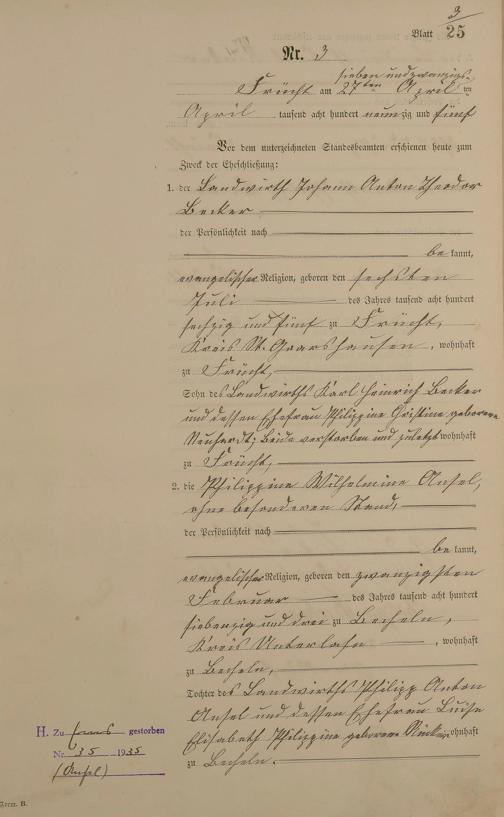 3
Blatt 25
Nr. 3
sieben und zwanzigs-
Frücht am 27ten April
April tausend acht hundert neunzig und fünf
Vor dem unterzeichneten Standesbeamten erschienen heute zum
Zweck der Eheschließung:
1. der Landwirth Johann Anton Theodor
Becker
der Persönlichkeit nach
be kannt,
evangelischer Religion, geboren den sechsten
Juli des Jahres tausend acht hundert
sechzig und fünf zu Frücht,
Kreis St. Goarshausen, wohnhaft
zu Frücht,
Sohn des Landwirths Karl Heinrich Becker
und dessen Ehefrau Philippine Christine geborene
beide verstorben und zuletzt wohnhaft
zu Frücht,
2. die Philippine Wilhelmine Ansel,
ohne besonderen Stand,
der Persönlichkeit nach
be kannt,
evangelischer Religion, geboren den zwanzigsten
Februar des Jahres tausend acht hundert
siebenzig und drei zu Becheln,
Kreis Unterlahn, wohnhaft
zu Becheln,
Tochter des Landwirths Philipp Anton
Ansel und dessen Ehefrau Luise
Elisabeth Philippine geborene wohnhaft
zu Becheln.
H. Zu gestorben
Nr. 35 1935
(Ansel)
Form. B.